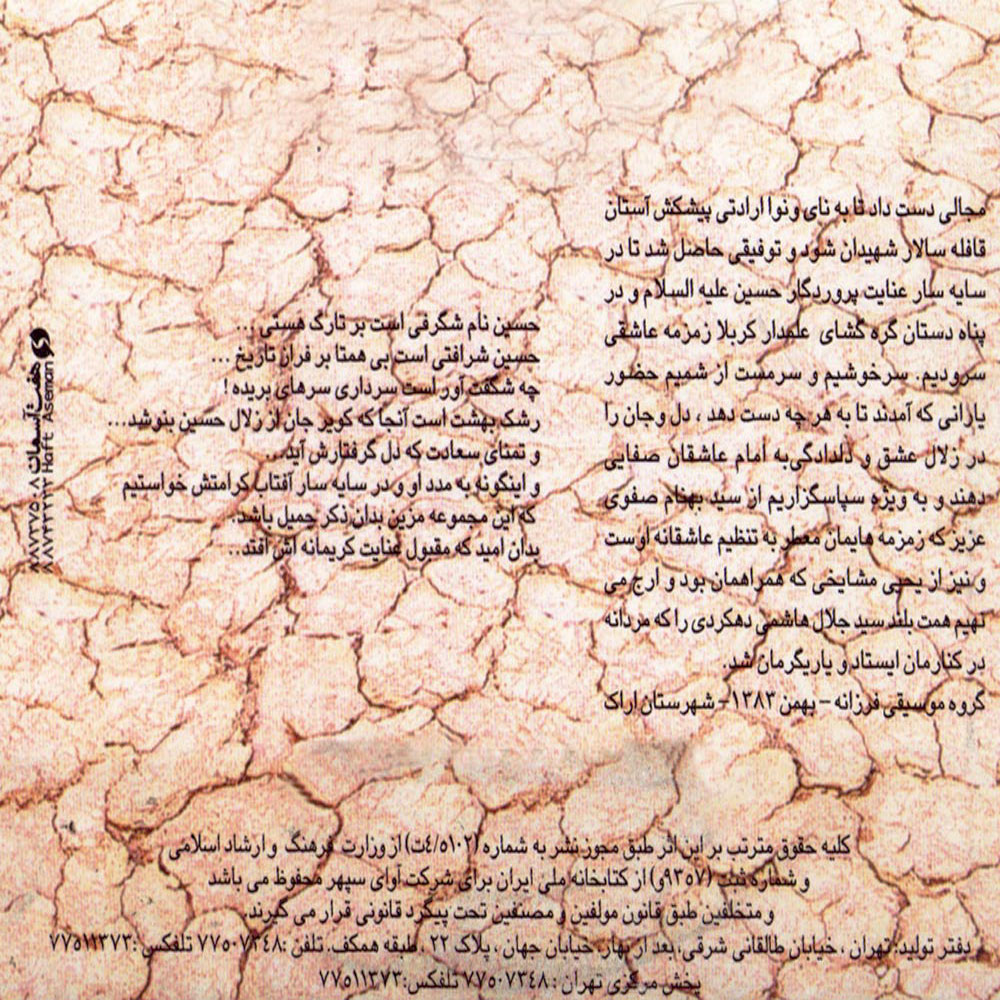 مجالی دست داد تا به نای و نوا ارادتی پیشکش آستان
قافله سالار شهیدان شود و توفیقی حاصل شد تا در
سایه سار عنایت پروردگار حسین علیه السلام و در
پناه دستان گره گشای علمدار کربلا زمزمه عاشقی
سرودیم. سرخوشیم و سرمست از شمیم حضور
یارانی که آمدند تا به هر چه دست دهد ، دل وجان را
در زلال عشق و دلدادگی به امام عاشقان صفایی
دهند و به ویژه سپاسگزاریم از سید بهنام صفوی
عزیز که زمزمه هایمان معطر به تنظیم عاشقانه اوست
و نیز از یحیی مشایخی که همراهمان بود و ارج می
نهیم همت بلند سید جلال هاشمی دهکردی را که مردانه
در کنارمان ایستاد و یاریگرمان شد.
گروه موسیقی فرزانه – بهمن ۱۳۸۳- شهرستان اراک
حسین نام شگرفی است بر تارک هستی ...
حسین شرافتی است بی همتا بر فراز تاریخ ...
چه شگفت آور است سرداری سرهای بریده !
رشک بهشت است آنجا که کویر جان از زلال حسین بنوشد...
و تمنای سعادت که دل گرفتارش آید...
و اینگونه به مدد او و در سایه سار آفتاب کرامتش خواستیم
که این مجموعه مزین بدان ذکر جمیل باشد.
بدان امید که مقبول عنایت کریمانه اش افتد...
هفت آسمان
Haft Aseman
کلیه حقوق مترتب بر این اثر طبق مجوز نشر به شماره (۴/۵۱۰۲ت) از وزارت فرهنگ و ارشاد اسلامی
و شماره ثبت (۹۳۵۷و) از کتابخانه ملی ایران برای شرکت آوای سپهر محفوظ می باشد
و متخلفین طبق قانون مولفین و مصنفین تحت پیگرد قانونی قرار می گیرند.
دفتر تولید: تهران ، خیابان طالقانی شرقی، بعد از بهار، خیابان جهان ، پلاک ۲۲ ، طبقه همکف. تلفن :۷۷۵۰۷۳۴۸ تلفکس :۷۷۵۱۱۳۷۳
پخش مرکزی تهران : ۷۷۵۰۷۳۴۸ تلفکس:۷۷۵۱۱۳۷۳